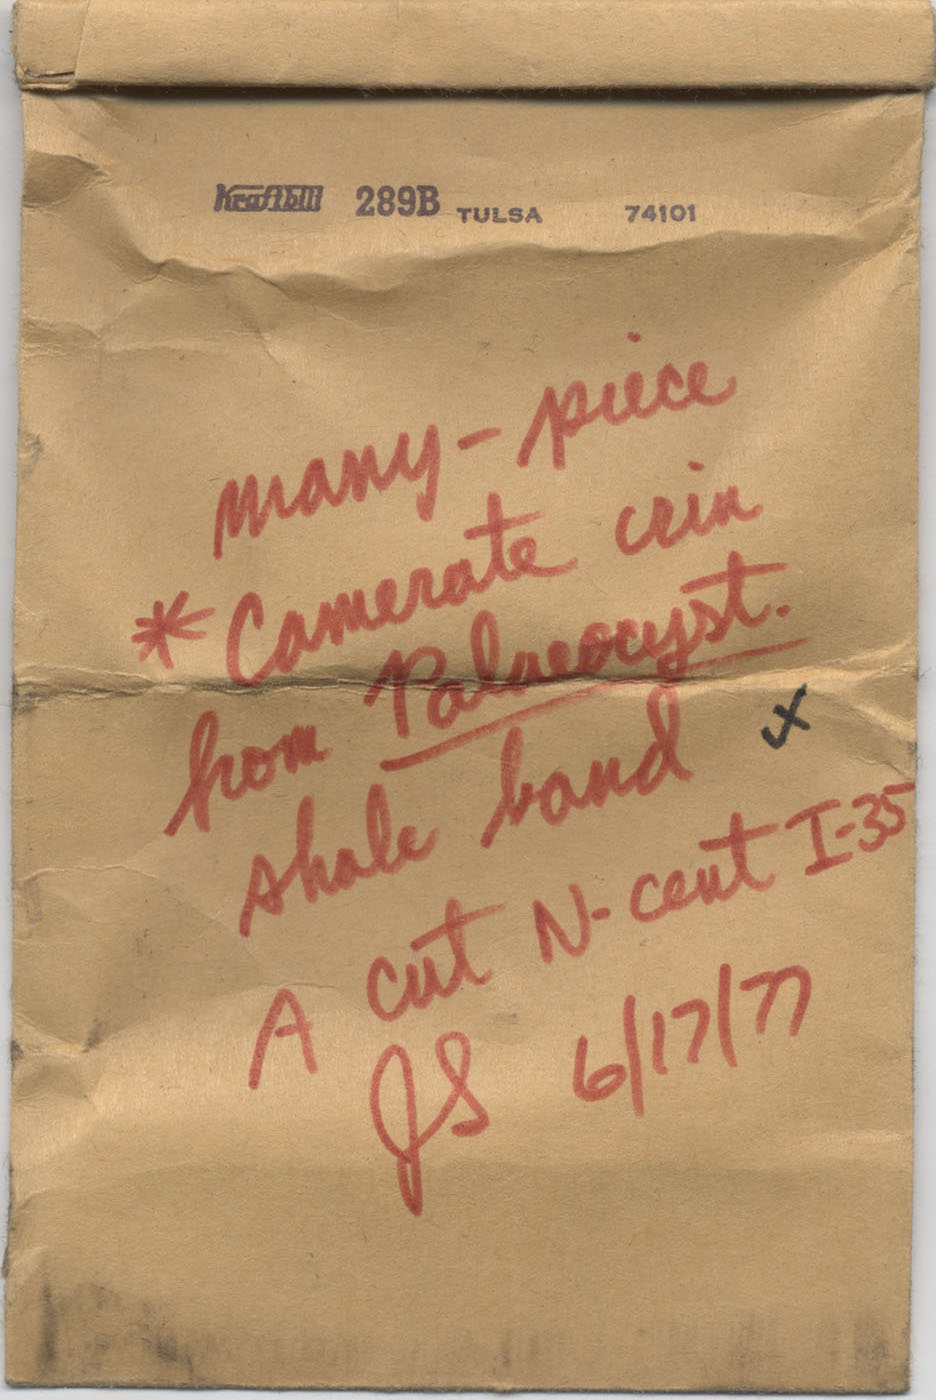 Kraftbilt 289B TULSA 74101
many-piece
* Camerate crin
from Palaeocyst.
shale band x
A cut N-cent I-35
JS 6/17/77